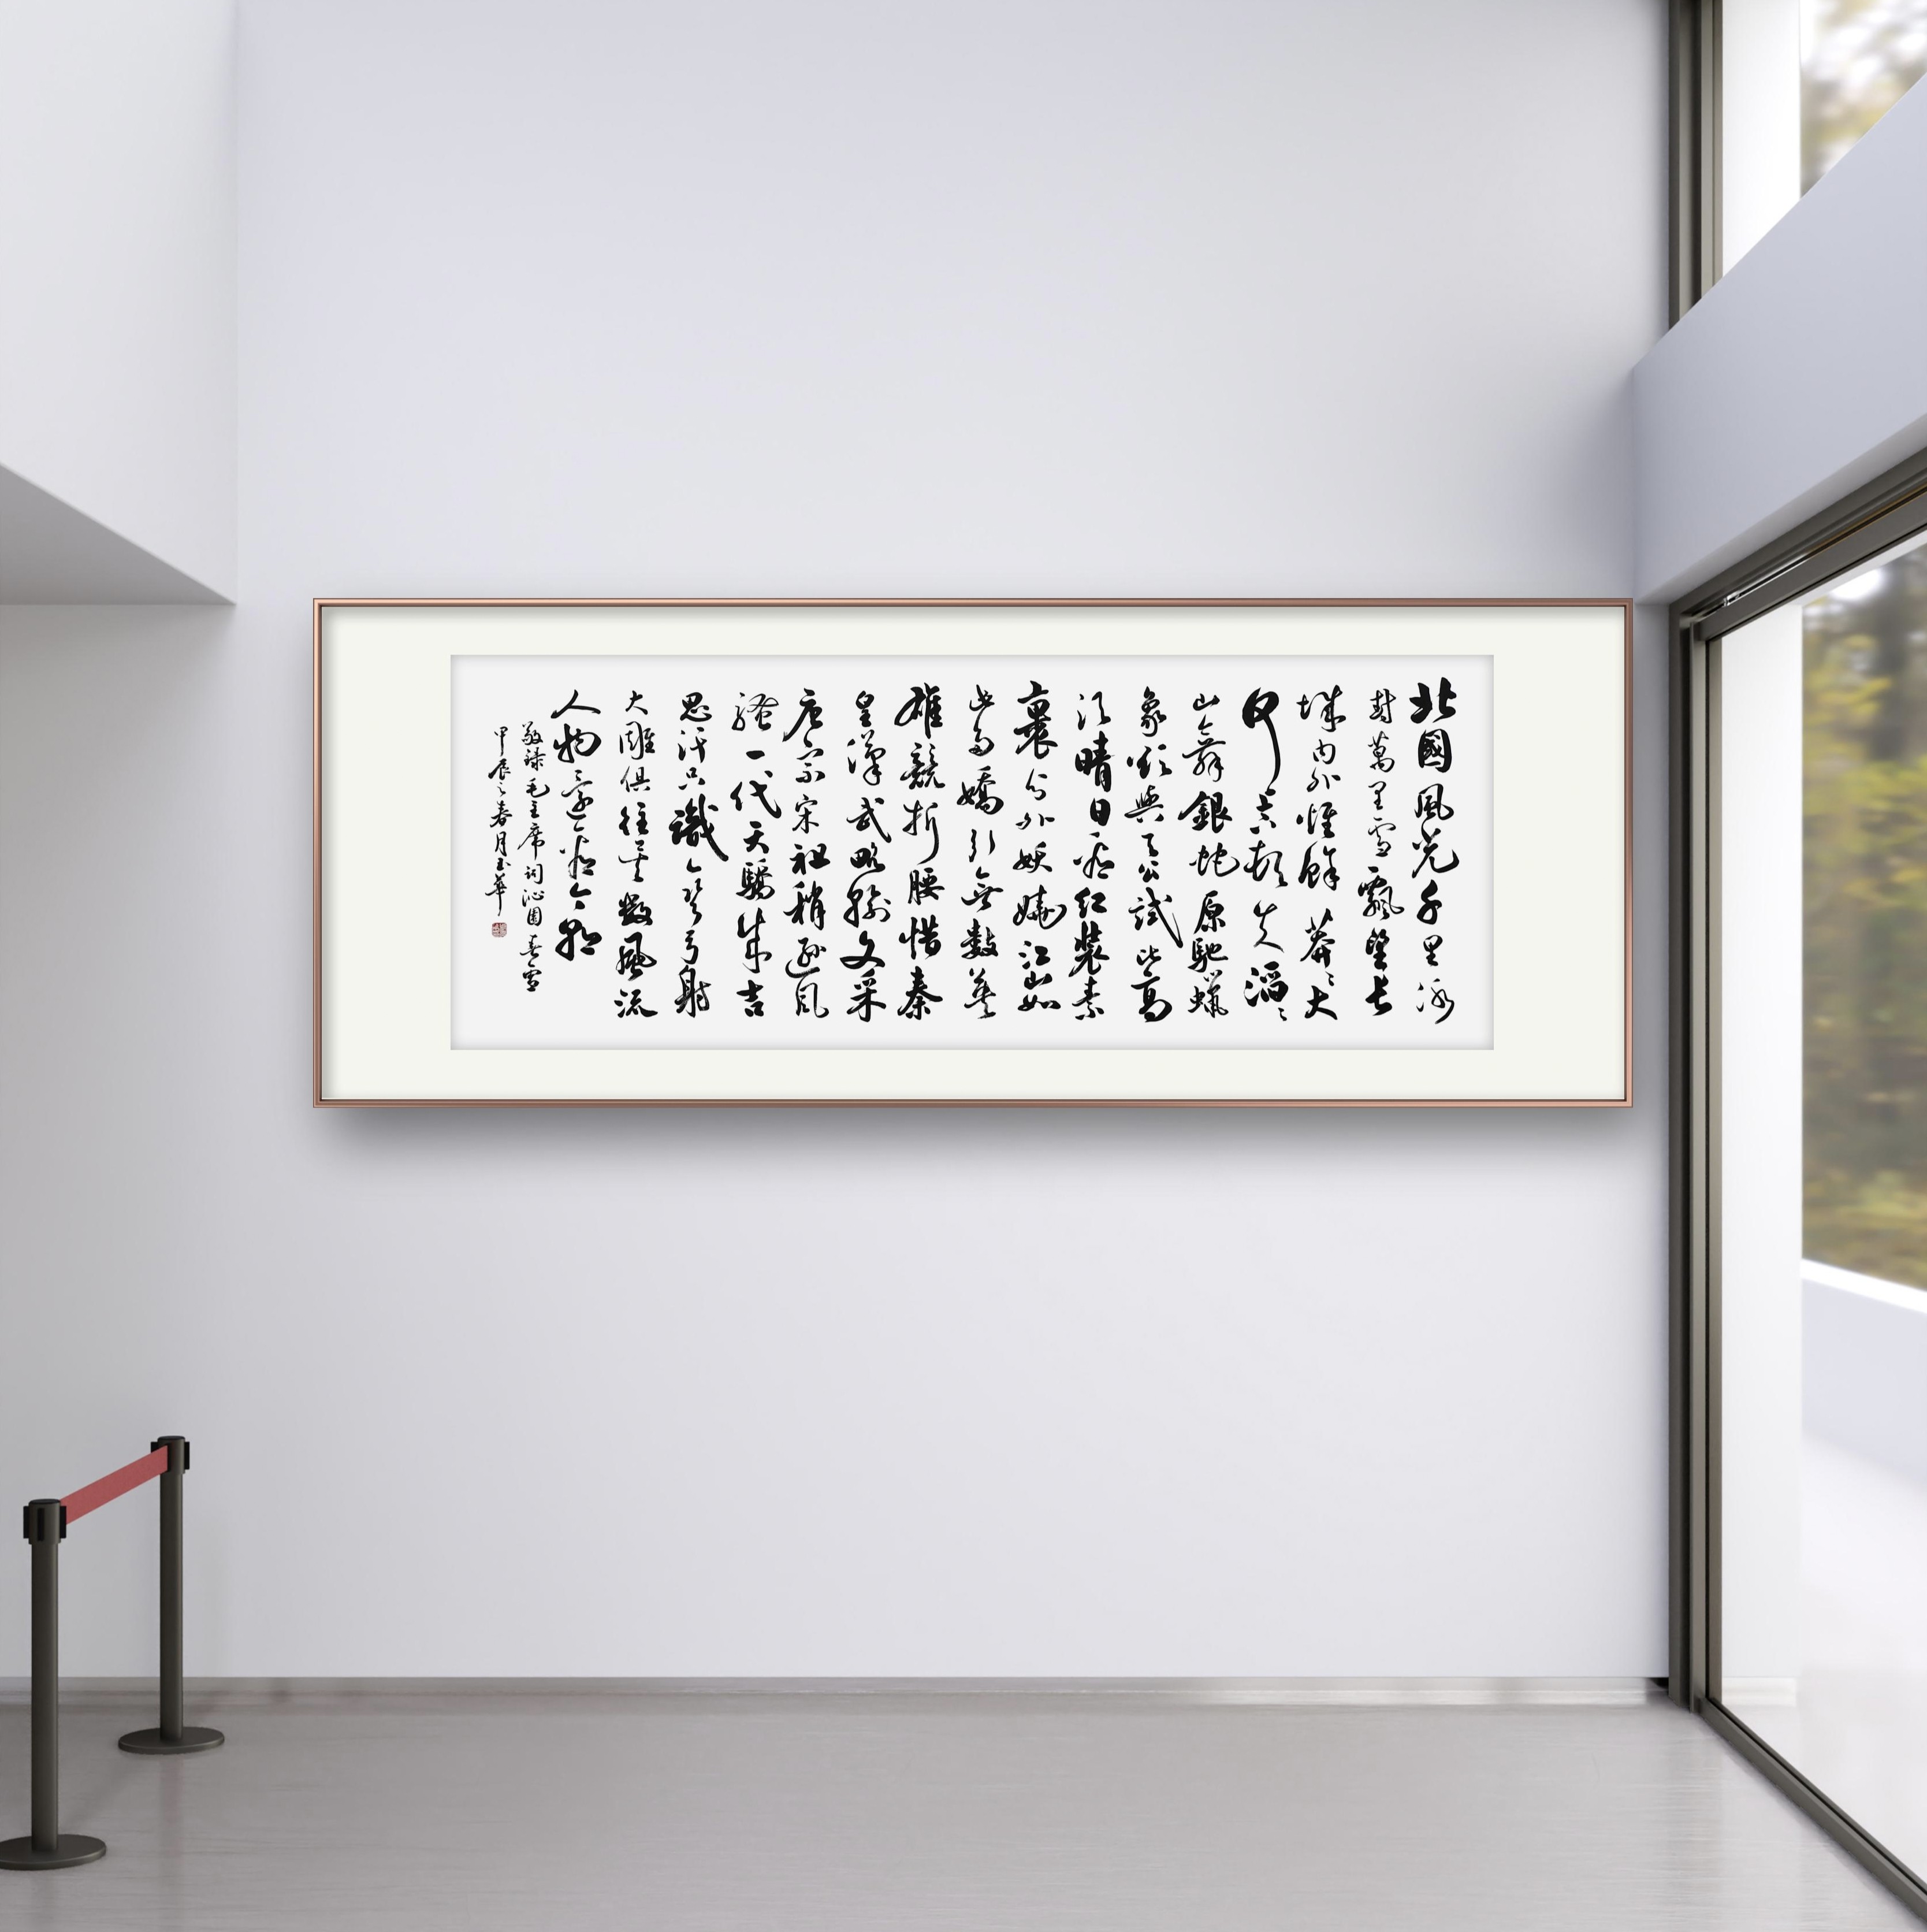 北國風光千里冰
封萬里雪飄望長
城内外惟餘莽〻大
河上下頓失滔〻
山舞銀蛇原馳蠟
象欲與天公試比高
須晴日看红裝素
裹分外妖嬈江山如
此多嬌引無數英
雄競折腰惜秦
皇漢武略輸文采
唐宗宋祖稍遜風
騷一代天驕成吉
思汗只識彎弓射
大雕俱往矣數風流
人物還看今朝
敬録毛主席词沁園春雪
甲辰之春月玉華